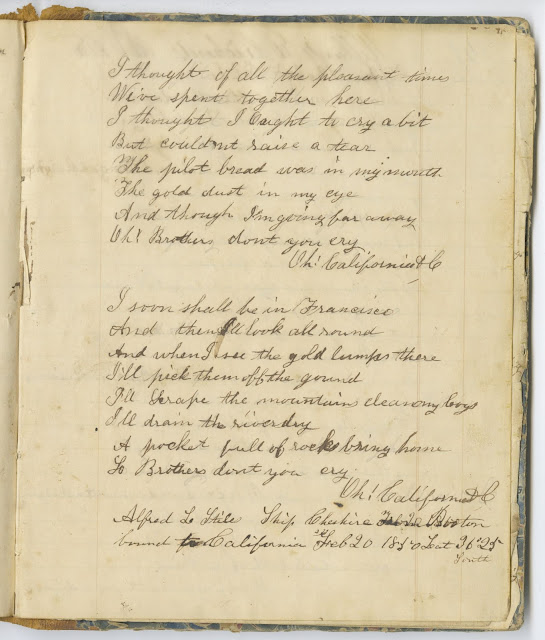 I thought of all the pleasant times
We've spent together here
I thought I Ought to cry a bit
But couldnt raise a tear
The pilot bread was in my mouth
The gold dust in my eye
And though I'm going far away
Oh! Brothers dont you cry
Oh! California & C
I soon shall be in Francisco
And then I'll look all round
And when I see the gold lumps there
I'll pick them off the gound
I'll Scrape the mountains clean my boys
I'll drain the river dry
A pocket full of rocks bring home
So Brothers dont you cry
Oh! California & C
Alfred Ship Cheshire Boston
bound to California Feb 20 1850 Lat 36°25
South